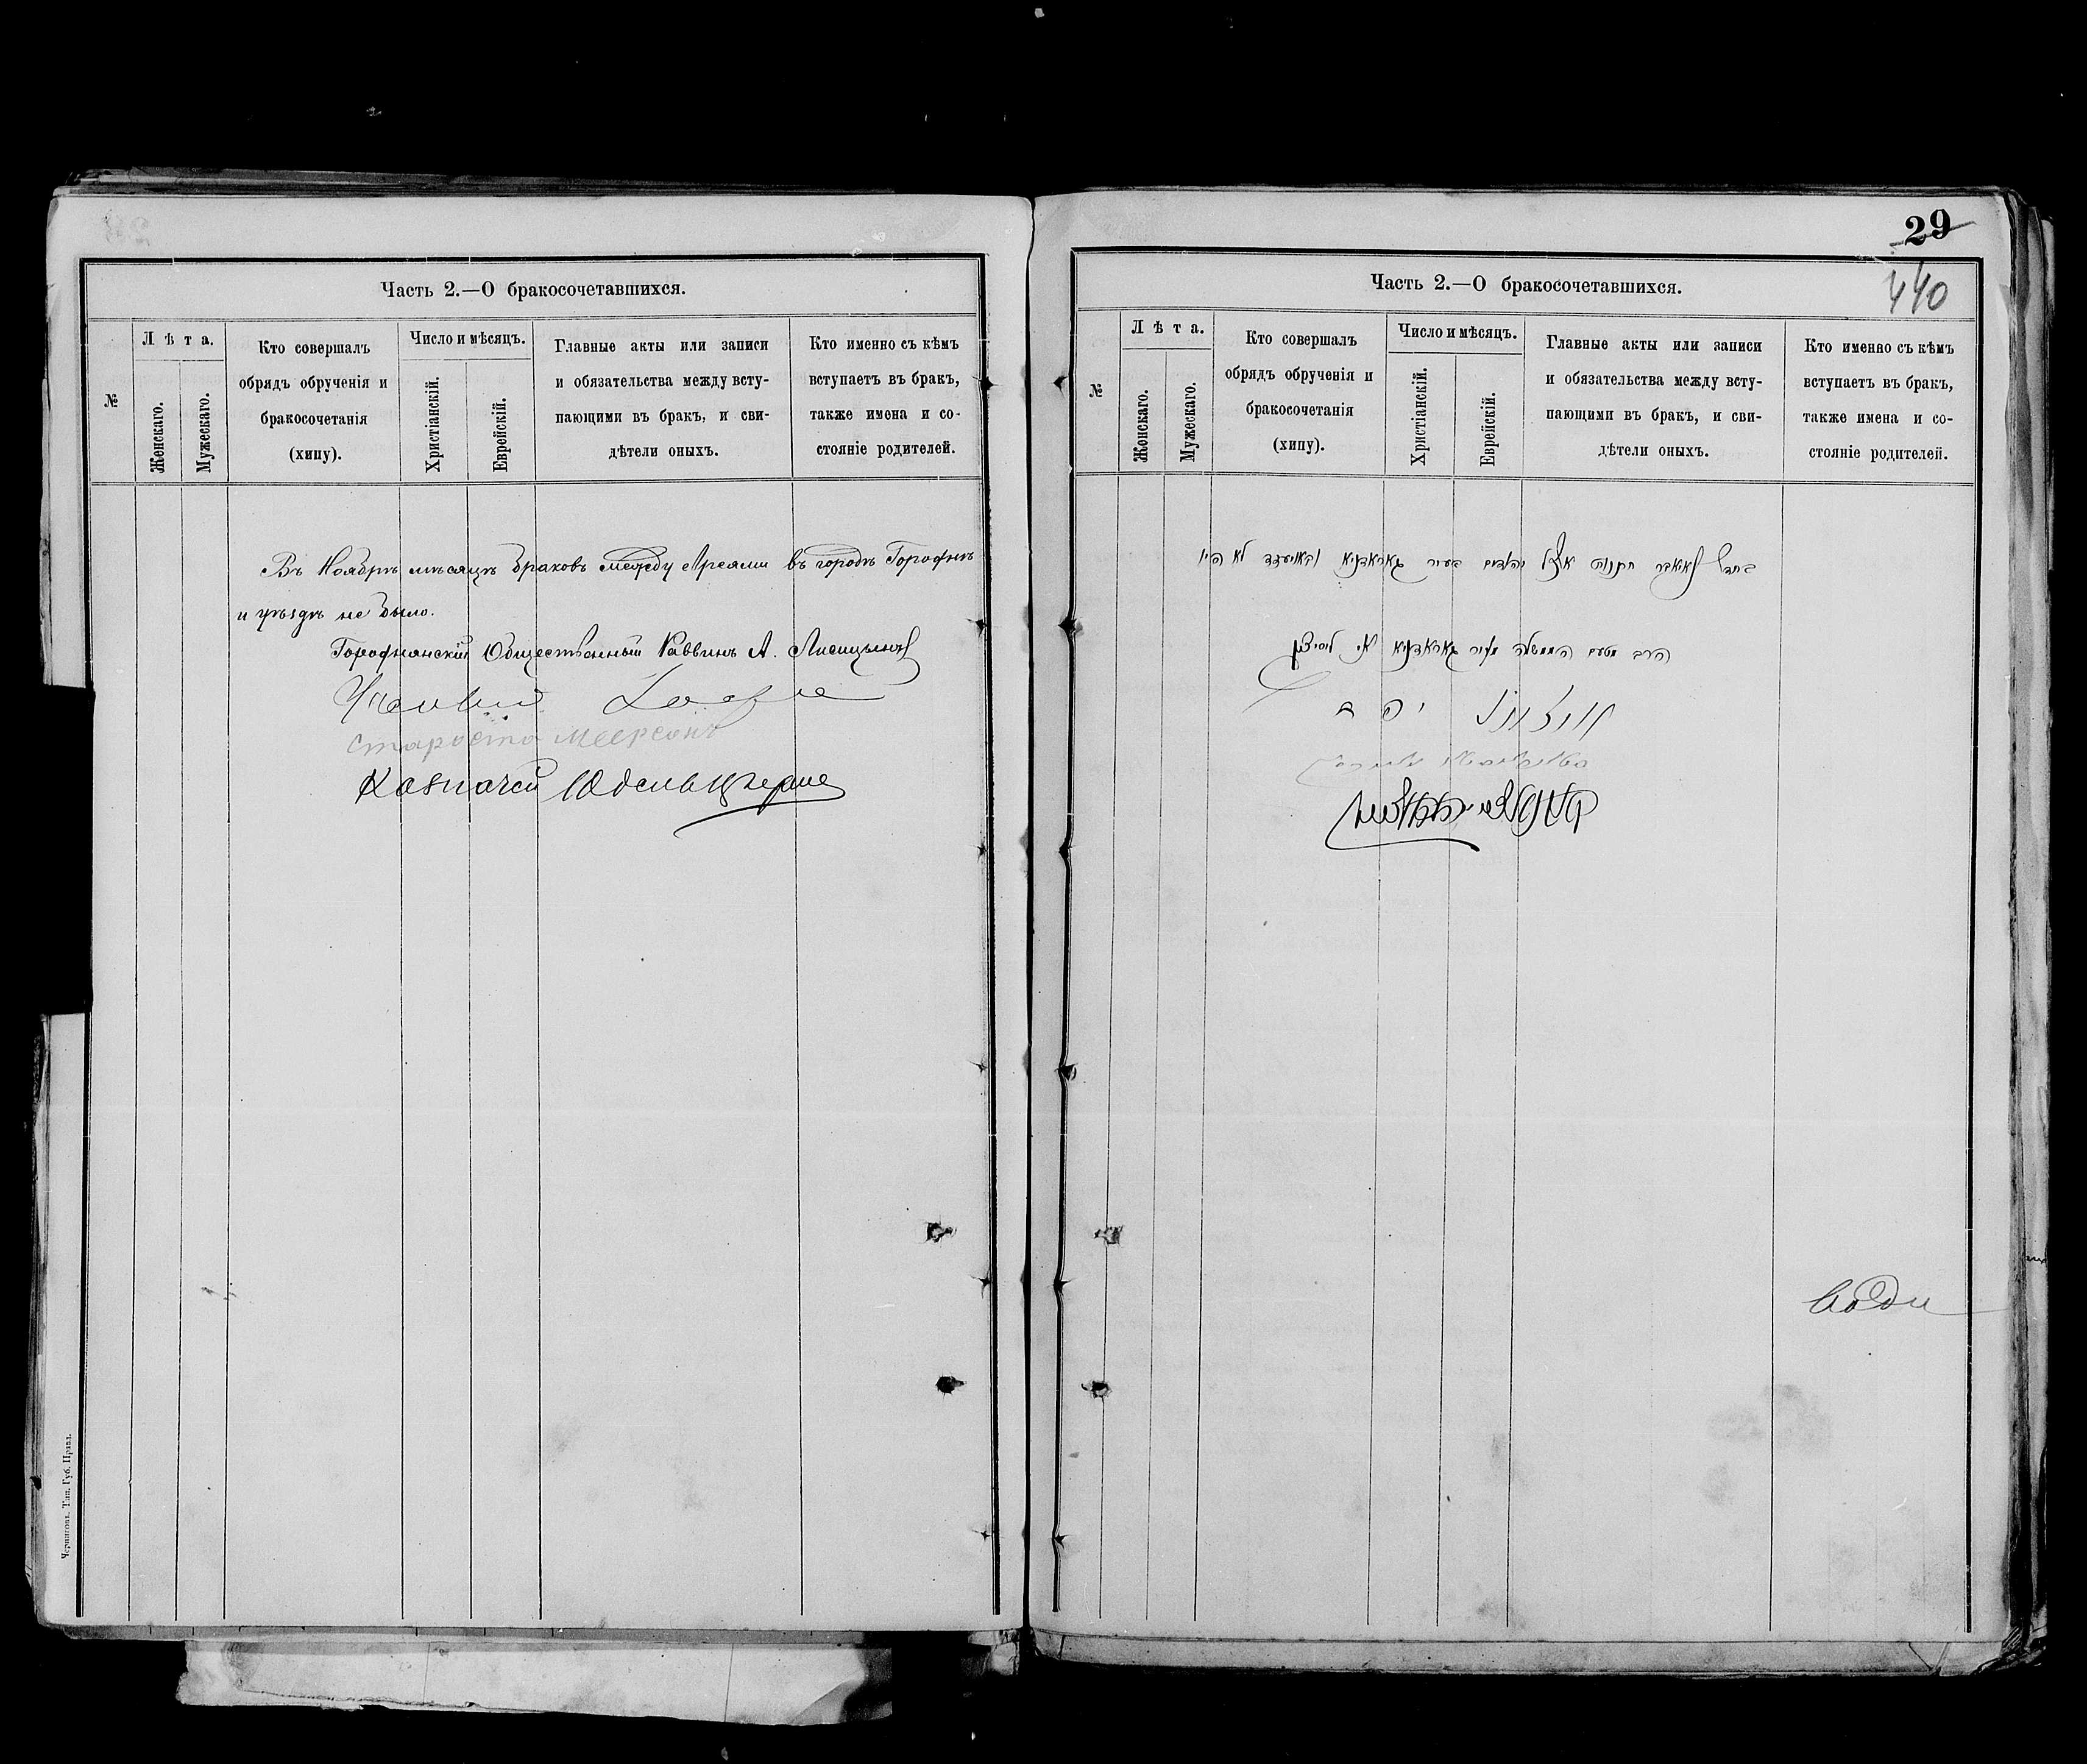 Часть 2.—О бракосочетавшихся.
№
Лѣта.
Женскаго.
Мужескаго.
Кто совершалъ
обрядъ обрученія и
бракосочетанія
(хипу).
Число и мѣсяцъ.
Христіанскій.
Еврейскій.
Главные акты или записи
и обязательства между всту-
пающими въ бракъ, и сви-
дѣтели оныхъ.
Кто именно съ кѣмъ
вступаетъ въ бракъ,
также имена и со-
стояніе родителей.
Въ Ноябрѣ мѣсяцѣ браковъ между Евреями въ городѣ Городнѣ
и уѣздѣ не было.
Городнянскій Общественный Раввинъ А. Лисицынъ
Ученый
Староста Меерсонъ
Казначей
Черниговъ. Тип. Губ. Правл.
29
440
Часть 2.—О бракосочетавшихся.
№
Лѣта.
Женскаго.
Мужескаго.
Кто совершалъ
обрядъ обрученія и
бракосочетанія
(хипу).
Число и мѣсяцъ.
Христіанскій.
Еврейскій.
Главные акты или записи
и обязательства между всту-
пающими въ бракъ, и сви-
дѣтели оныхъ.
Кто именно съ кѣмъ
вступаетъ въ бракъ,
также имена и со-
стояніе родителей.
בחדש נאיאבר חתנות אצל יהודים בעיר גאראדניא ובאויעזד לא היו
הרב מטעם הממשלה מעיר גאראדניא א׳ ליסיצין